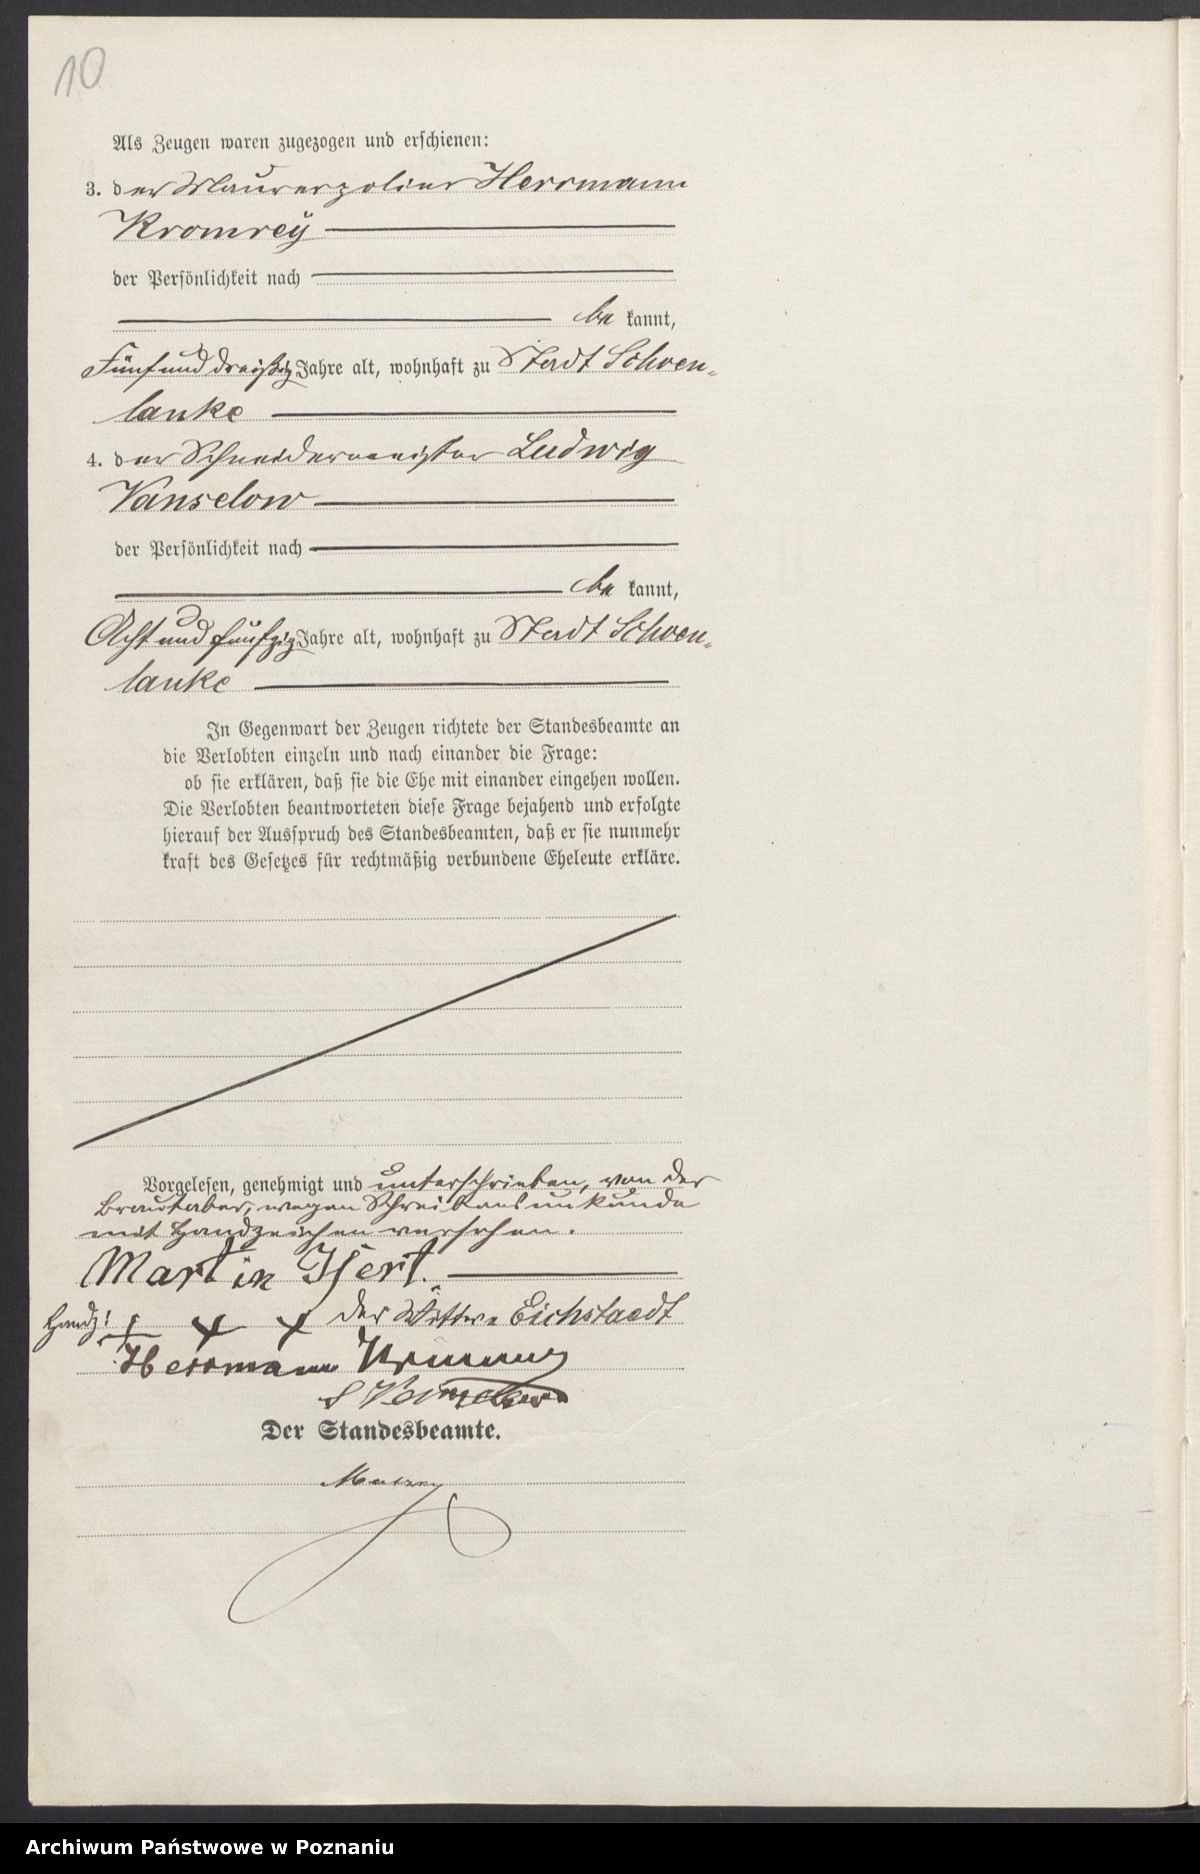 10
Als Zeugen waren zugezogen und erschienen:
3. der Maurerpolier Herrmann
Kromrey
der Persönlichkeit nach
be kannt,
Fünf und dreißig Jahre alt, wohnhaft zu Stadt Schoen-
lanke
4. der Schneidermeister Ludwig
Vanselow
der Persönlichkeit nach
be kannt,
Acht und fünfzig Jahre alt, wohnhaft zu Stadt Schoen-
lanke
In Gegenwart der Zeugen richtete der Standesbeamte an
die Verlobten einzeln und nach einander die Frage:
ob sie erklären, daß sie die Ehe mit einander eingehen wollen.
Die Verlobten beantworteten diese Frage bejahend und erfolgte
hierauf der Ausspruch des Standesbeamten, daß er sie nunmehr
kraft des Gesetzes für rechtmäßig verbundene Eheleute erkläre.
Vorgelesen, genehmigt und unterschrieben, von der
Braut aber, wegen Schreibensunkunde
mit Handzeichen versehen.
Martin Isert.
Handz: + + + der Wittwe Eichstaedt
Herrmann
Der Standesbeamte.
Archiwum Państwowe w Poznaniu